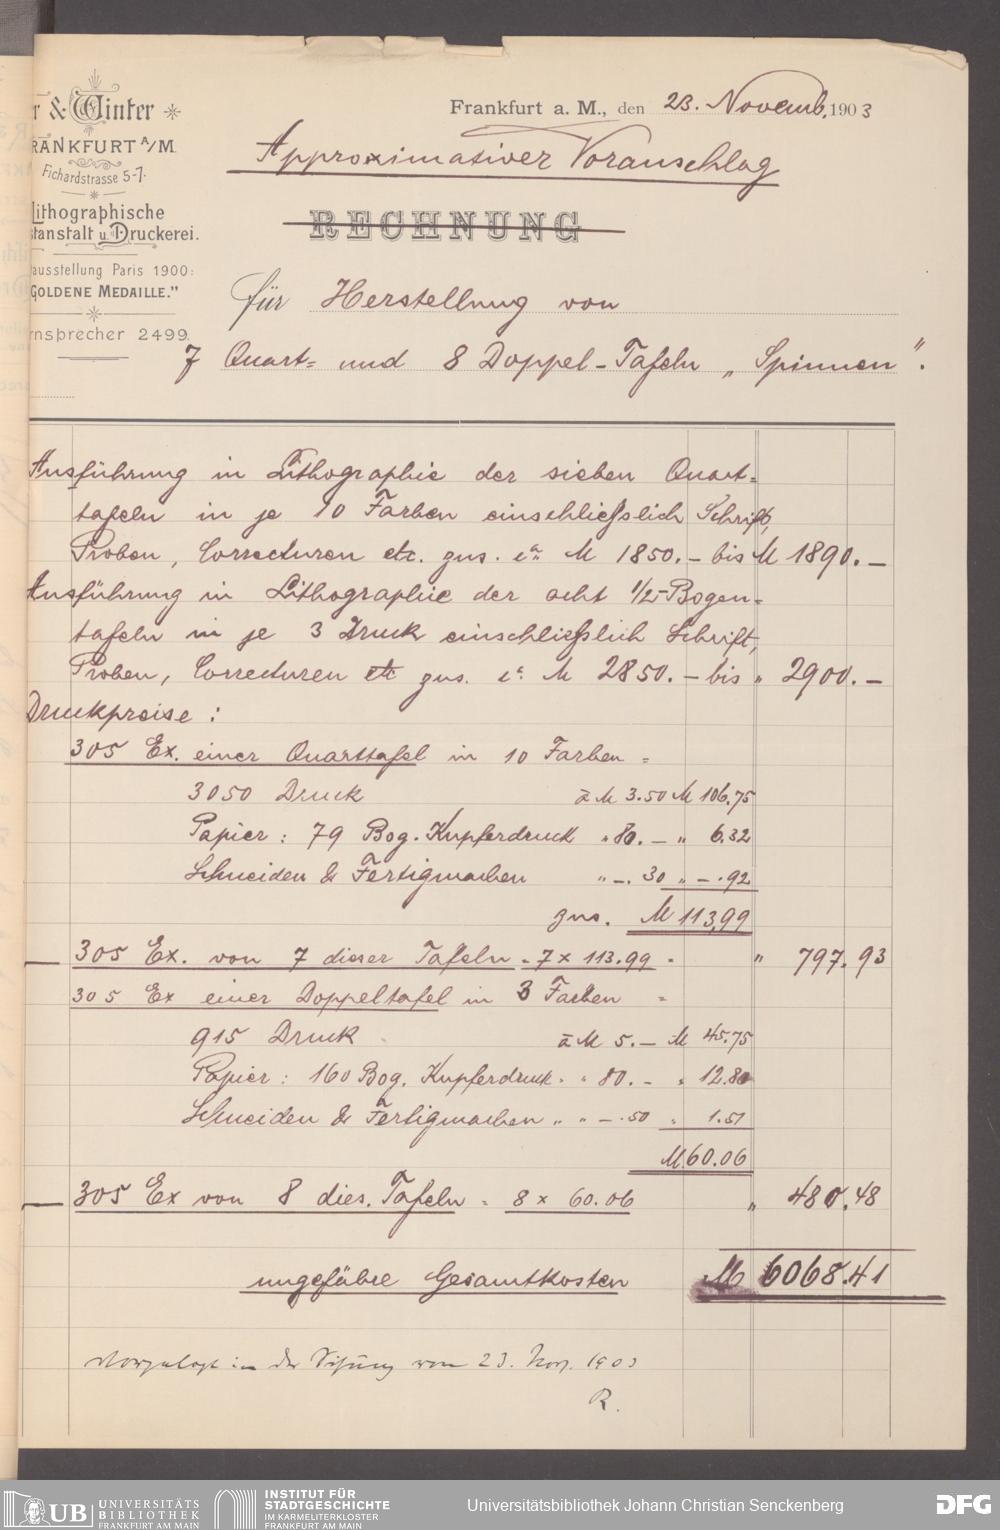 r & Winter
RANKFURT A/M.
Fichardstrasse 5-7.
Lithographische
stanstalt u. Druckerei.
ausstellung Paris 1900:
GOLDENE MEDAILLE."
rnsprecher 2499.
Frankfurt a. M., den 23. Novemb. 1903
Approximativer Voranschlag
RECHNUNG
für Herstellung von
7 Quart= und 8 Doppel-Tafeln „Spinnen".
Ausführung in Lithographie der sieben Quart=
tafeln in je 10 Farben einschliesslich Schrift,
Proben, Correcturen etc. zus. ca M 1850.— bis M 1890.—
Ausführung in Lithographie der acht 1/2-Bogen=
tafeln in je 3 Druck einschliesslich Schrift,
Proben, Correcturen etc zus. ca M 2850.— bis " 2900.—
Druckpreise:
305 Ex. einer Quarttafel in 10 Farben =
3050 Druck à M 3.50 M 106.75
Papier: 79 Bog. Kupferdruck " 80.— " 6.32
Schneiden & Fertigmachen " —.30 " —.92
zus. M 113,99
305 Ex. von 7 dieser Tafeln = 7 x 113.99 = " 797.93
305 Ex einer Doppeltafel in 3 Farben =
915 Druck à M 5.— M 45.75
Papier: 160 Bog. Kupferdruck " " 80.— " 12.80
Schneiden & Fertigmachen " " —.50 " 1.51
M 60.06
305 Ex von 8 dies. Tafeln = 8 x 60.06 " 480.48
ungefähre Gesamtkosten M 6068.41
Vorgelegt in der Sitzung vom 23. Nov. 1903
R.
UB UNIVERSITÄTS
BIBLIOTHEK
FRANKFURT AM MAIN
INSTITUT FÜR
STADTGESCHICHTE
IM KARMELITERKLOSTER
FRANKFURT AM MAIN
Universitätsbibliothek Johann Christian Senckenberg
DFG